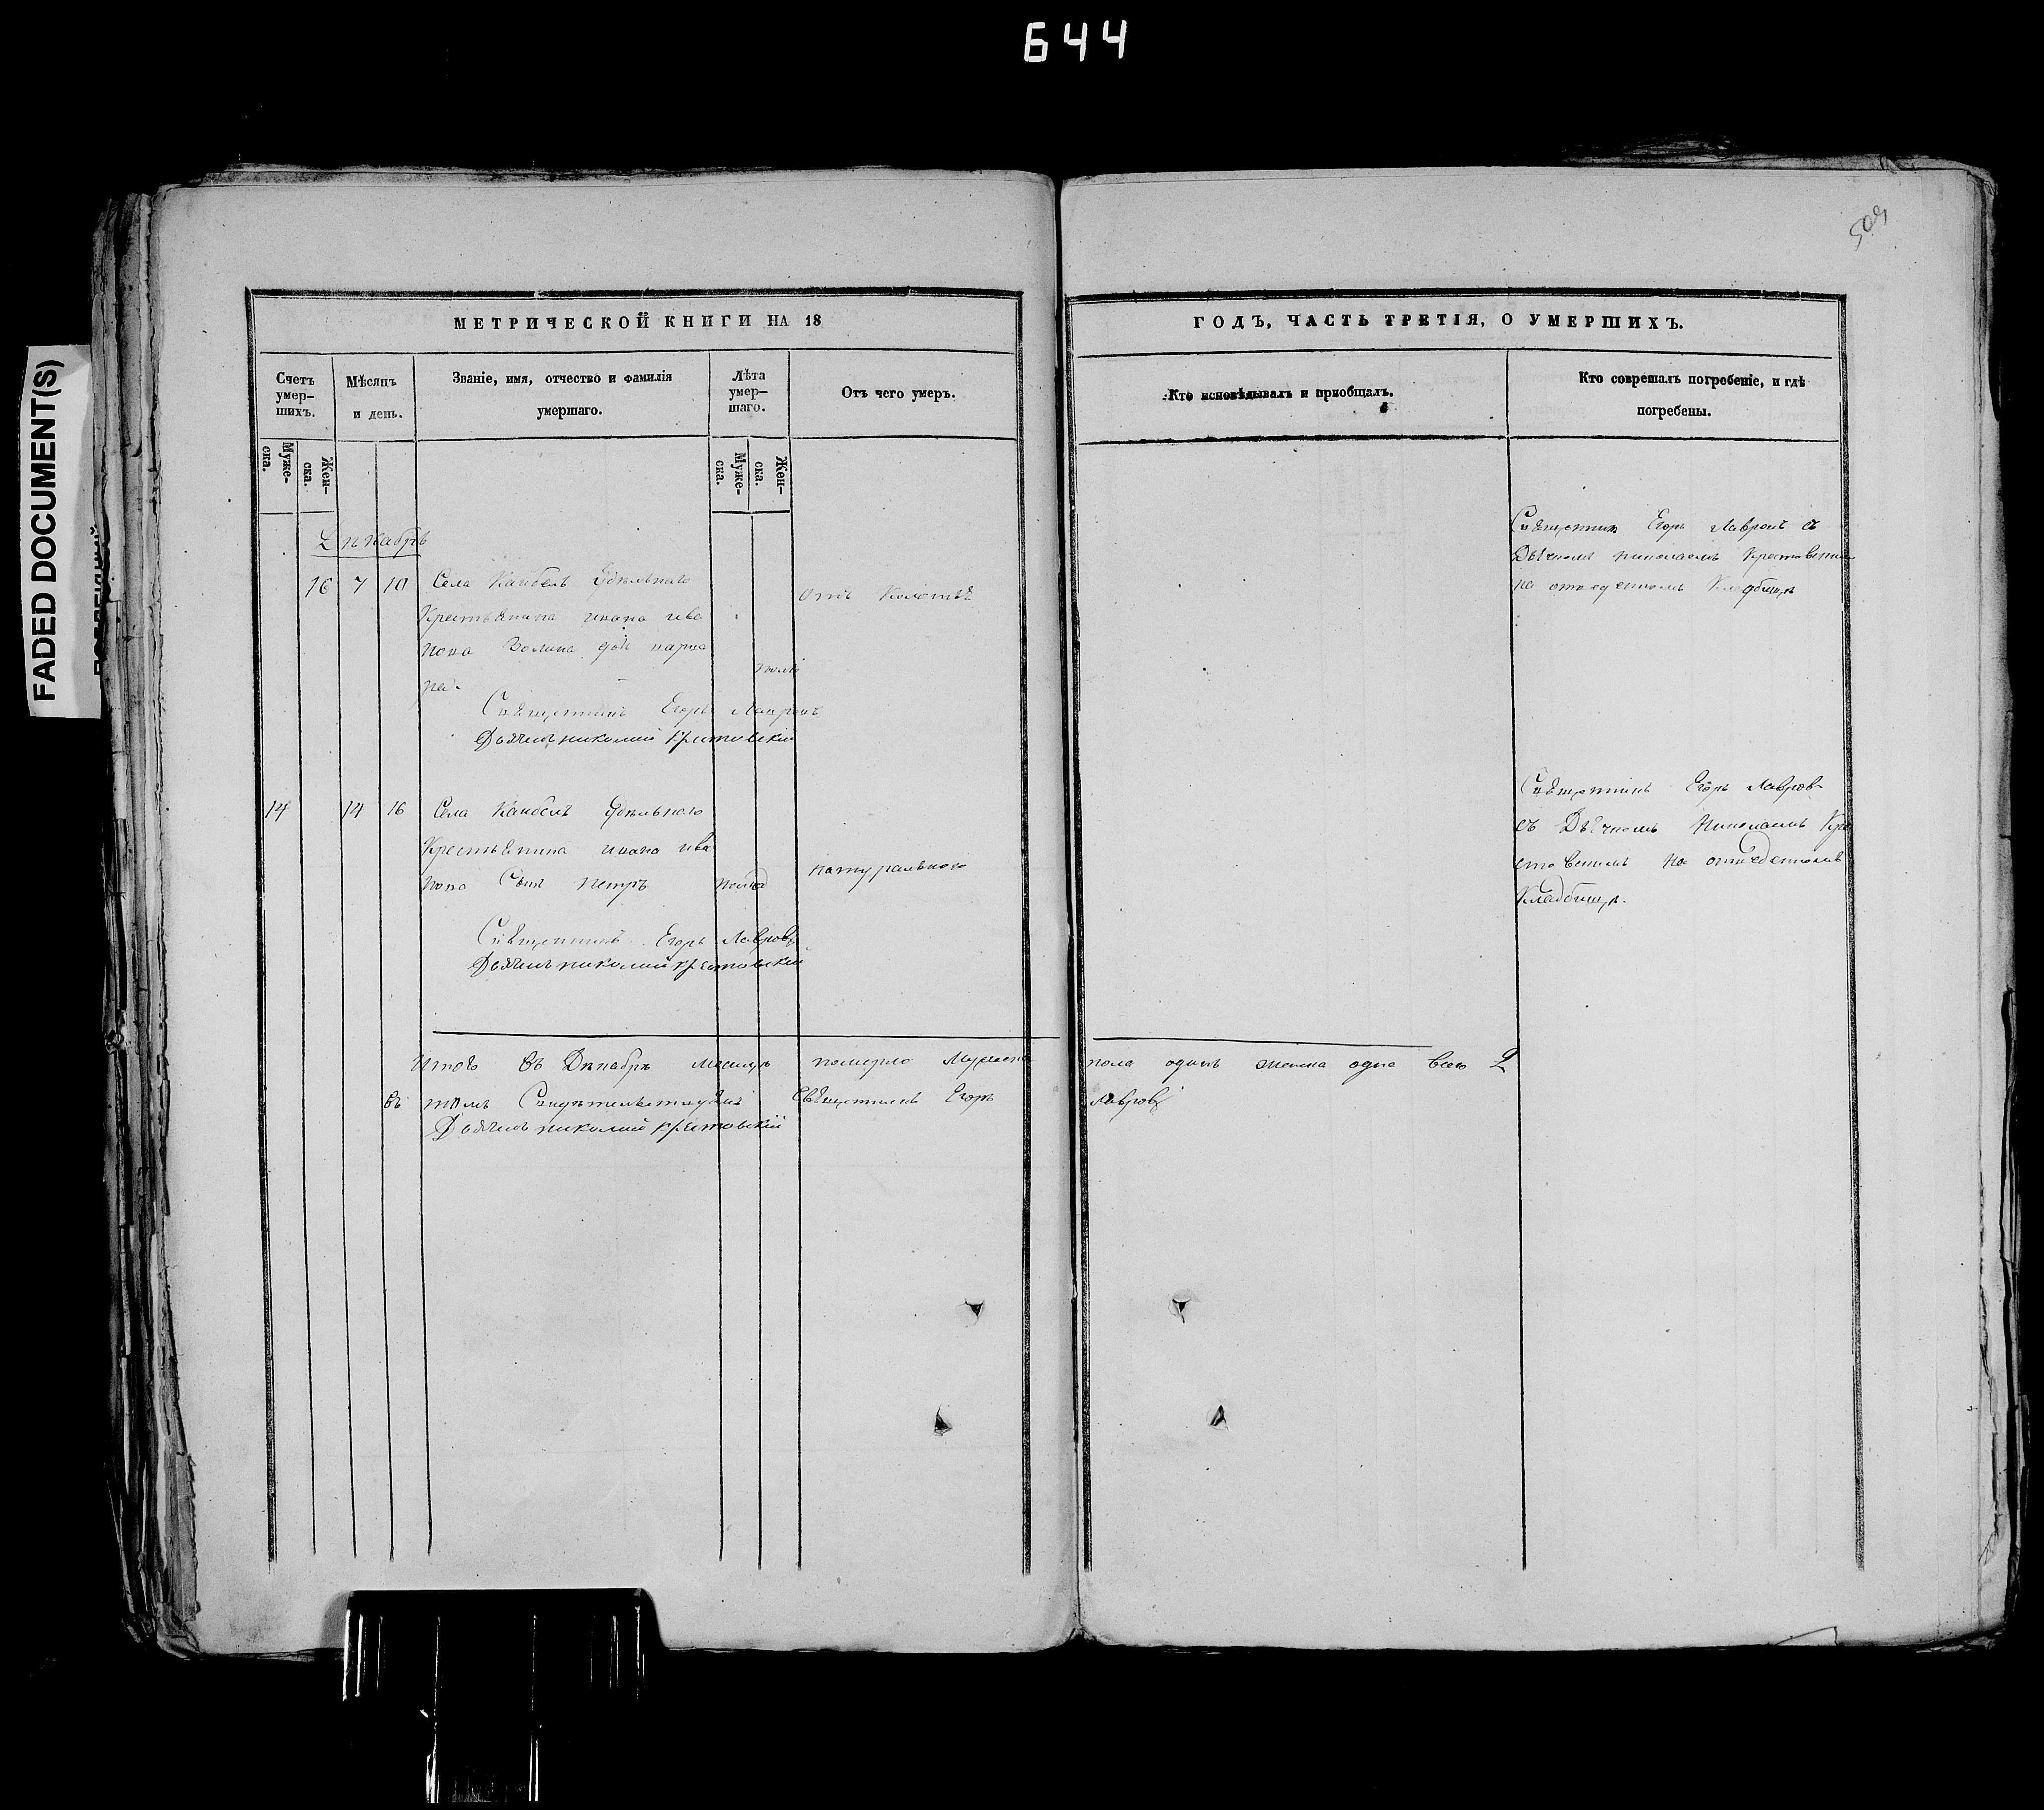 644
509
FADED DOCUMENT(S)
МЕТРИЧЕСКОЙ КНИГИ НА 18
Счетъ умер-шихъ.
Муже-ска.
Жен-ска.
Мѣсяцъ и день.
Званіе, имя, отчество и фамилія умершаго.
Лѣта умер-шаго.
Муже-ска.
Жен-ска.
Отъ чего умеръ.
ГОДЪ, ЧАСТЬ ТРЕТІЯ, О УМЕРШИХЪ.
Кто исповѣдывалъ и пріобщалъ.
Кто совершалъ погребеніе, и гдѣ погребены.
Декабрь
16 7 10 Села Каибелъ Удѣльнаго
Крестьянина ивана ива
нова дочь
Священникъ Егоръ Лавровъ
Дьячекъ николай крестовскій
Священник Егоръ Лавровъ съ
Дьячкомъ николаемъ Крестовским
на отведенномъ Кладбище
14 14 16 Села Каибелъ Удѣльнаго
Крестьянина ивана ива
нова Сынъ петръ
натурального
Священникъ Егоръ Лавровъ
Дьячекъ николай крестовскій
Священникъ Егоръ Лавров
съ Дьячкомъ Николаемъ Кре
стовскимъ на отведенномъ
Кладбище.
Итого въ Декабрѣ месяце померло Мужеска пола одинъ женска одна всего 2
въ томъ Свидѣтельствуемъ Священникъ Егоръ Лавровъ
Дьячекъ николай крестовскій